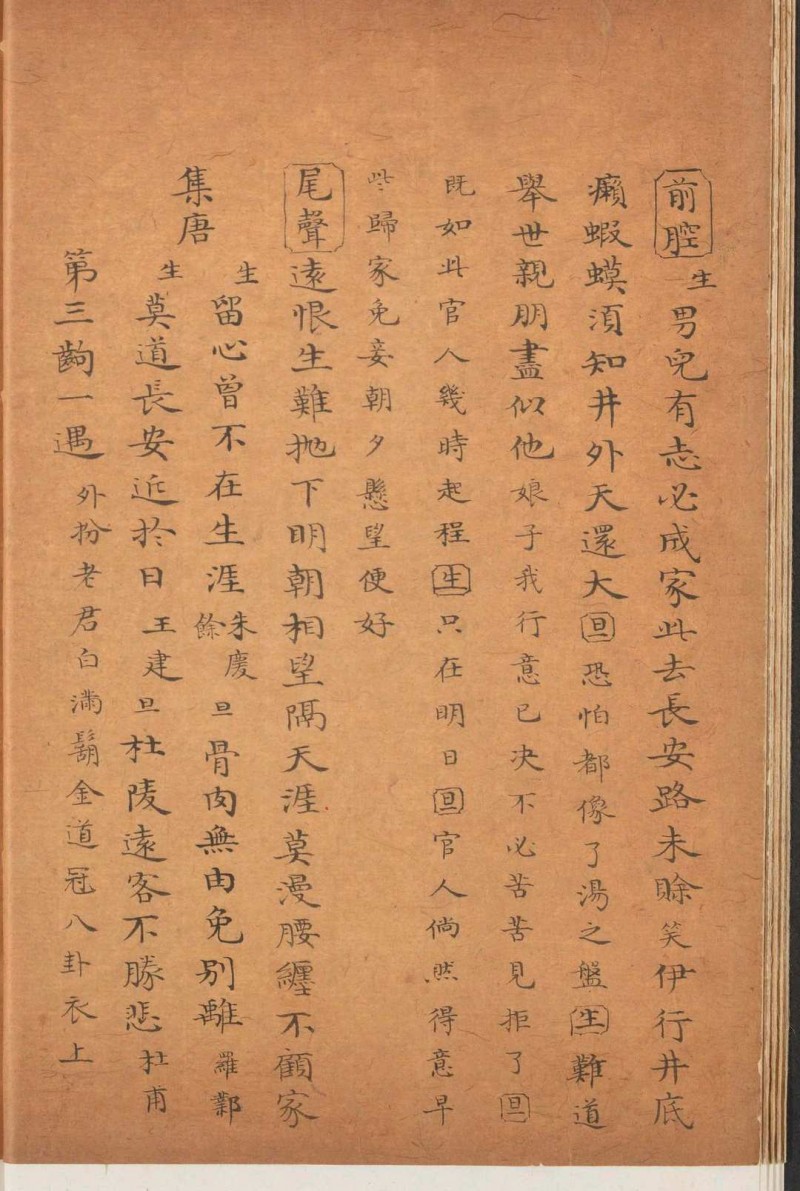 前腔生男兒有志必成家此去長安路未賒笑伊行井底
癩蝦蟆須知井外天還大旦恐怕都像了湯之盤生難道
舉世親朋盡似他娘子我行意已决不必苦苦見拒了旦
既如此官人幾時起程生只在明日旦官人倘然得意早
些歸家免妾朝夕懸望便好
尾聲遠恨生難抛下明朝相望隔天涯莫漫腰纏不顧家
集唐生留心曾不在生涯朱慶餘旦骨肉無由免别離羅鄴
生莫道長安近於日王建旦杜陵遠客不勝悲杜甫
第三齣一遇外扮老君白滿鬍金道冠八卦衣上